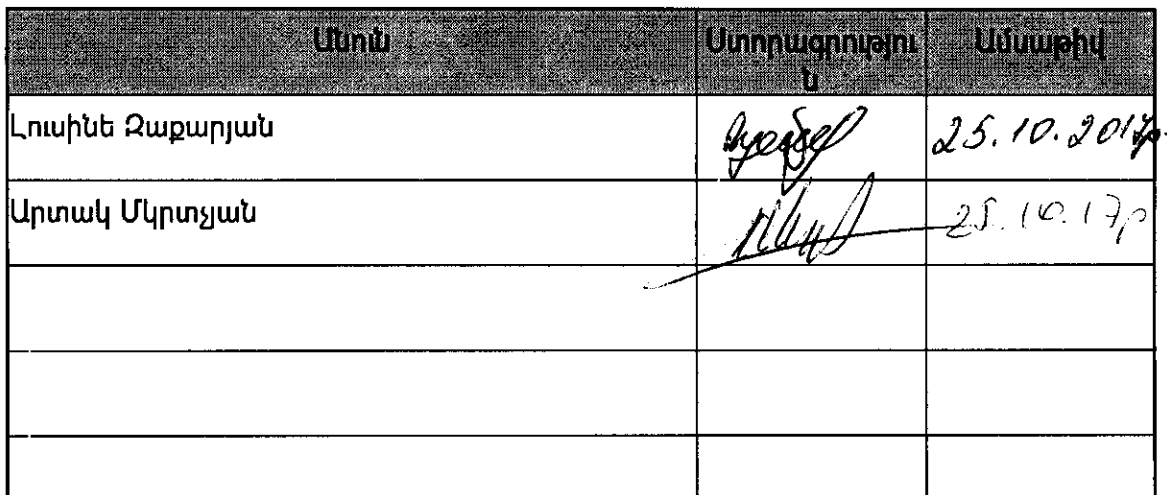 Անուն Ստորագրությու
ն Ամսաթիվ
Լուսինե Զաքարյան 25.10.2017թ.
Արտակ Մկրտչյան 25.10.17թ